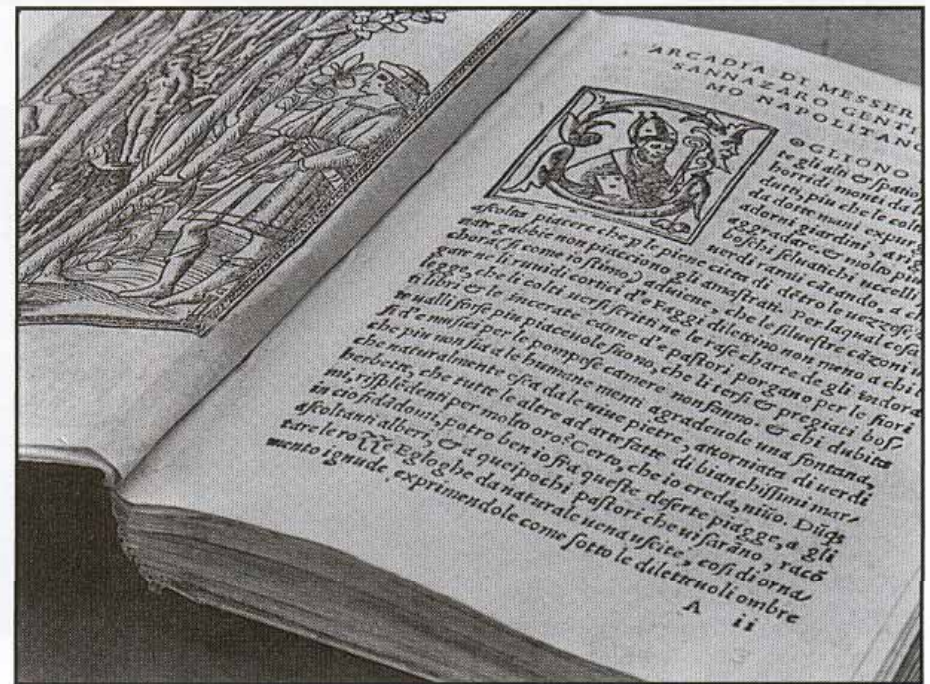 ARCADIA DI MESSER
SANNAZARO GENTI
MO NAPOLITANO
OGLIONO
te gli alti & spatio
horridi monti da
tutti, piu che le colte
da dotte mani expur
adorni giardini, a ri
aggradare & molto piu
verdi rami cãtando, a
boschi seluatichi uccelli
ascolta piacere che p le piene citta di dẽtro le uezzose
nate gabbie non piacciono gli amastrati. Per laqual cosa
chora (si come io stimo) aduiene, che le siluestre cãzoni
gate ne li ruuidi cortici d'e Faggi dilettino non meno a chi
legge, che li colti uersi scritti ne le rase charte de gli indora
ti libri & le incerate canne d'e pastori porgano per le fiori
te ualli forse piu piaceuole suono, che li tersi & pregiati bos/
si d'e musici per le pompose camere non fanno. & chi dubita
che piu non sia a le humane menti agradeuole una fontana,
che naturalmente esca da le uiue pietre, attorniata di uerdi
herbette, che tutte le altre ad arte fatte di bianchissimi mar/
mi, risplẽdenti per molto oro? Certo, che io creda, niũo. Dũqs
in cio fidãdomi, potro ben io fra queste deserte piagge, a gli
ascoltanti alberi, & a quei pochi pastori che ui sarãno, racõ
tare le rozze Egloghe da naturale uena uscite, cosi di orna/
mento ignude exprimendole come sotto le diletteuoli ombre
A ii
3